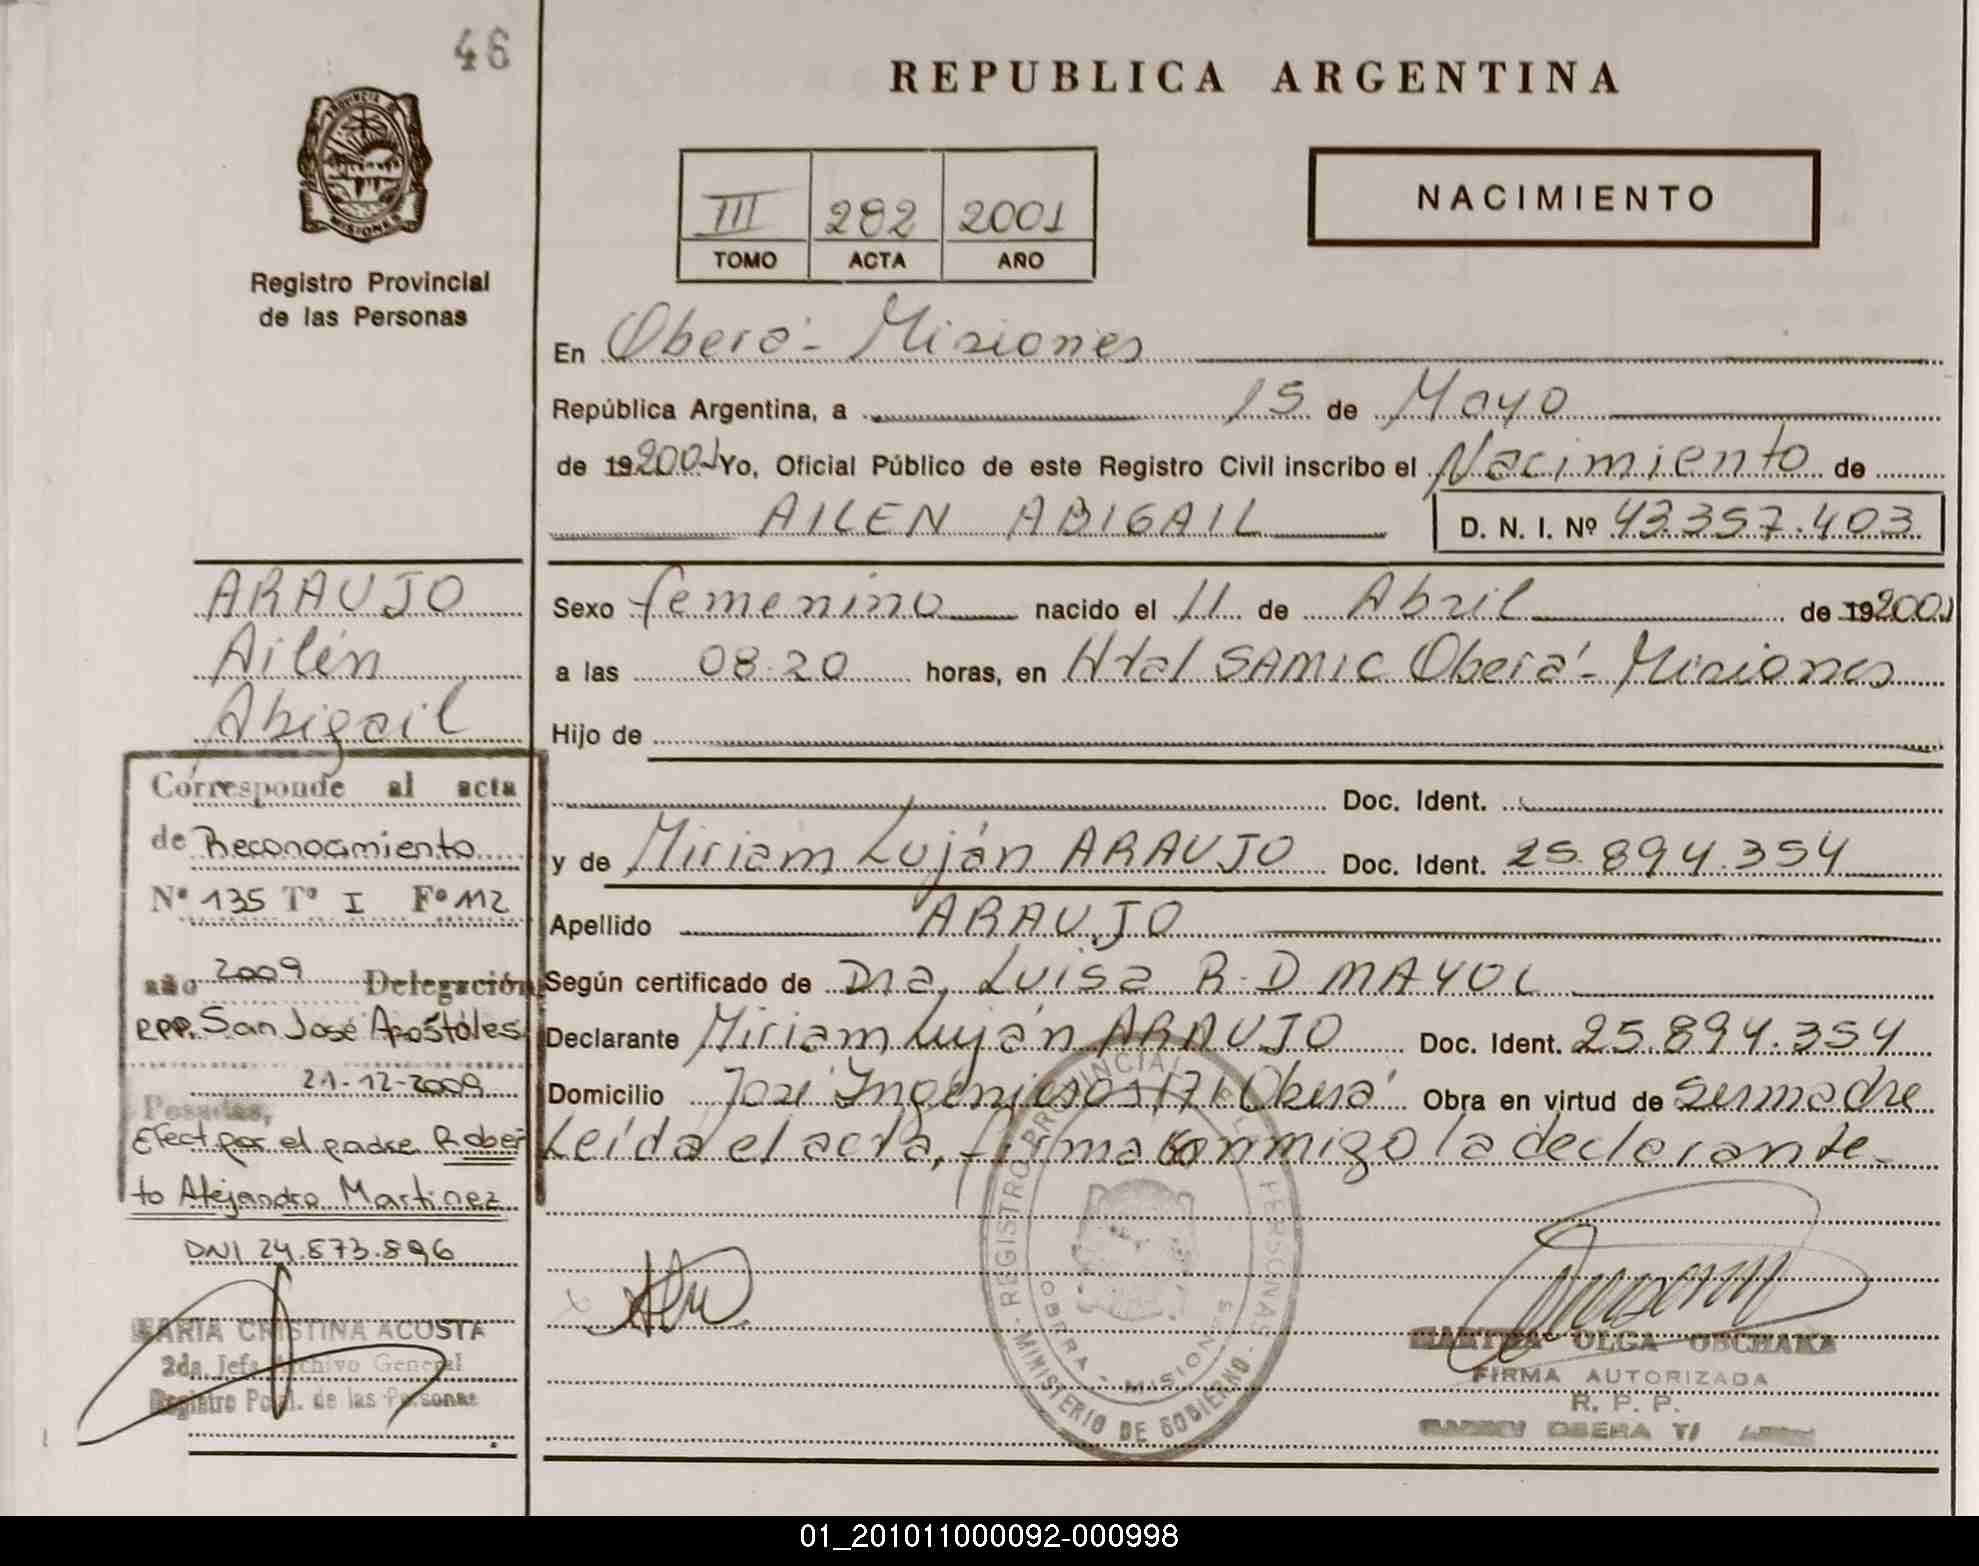 46
REPUBLICA ARGENTINA
PROVINCIA DE
MISIONES
Registro Provincial
de las Personas
III 282 2001
TOMO ACTA AÑO
NACIMIENTO
En Oberá - Misiones
República Argentina, a 15 de Mayo
de 19 2001 Yo, Oficial Público de este Registro Civil inscribo el Nacimiento de
AILEN ABIGAIL D. N. I. Nº 43.357.403
Sexo femenino nacido el 11 de Abril de 19 2001
a las 08.20 horas, en Htal SAMIC Oberá - Misiones
Hijo de
Doc. Ident.
y de Miriam Luján ARAUJO Doc. Ident. 25.894.354
Apellido ARAUJO
Según certificado de Dra. Luisa R. D MAYOL
Declarante Miriam Luján ARAUJO Doc. Ident. 25.894.354
Domicilio José Ingenieros 171 Oberá Obra en virtud de ser madre
Leída el acta, firma conmigo la declarante.
ARAUJO
Ailén
Abigail
Corresponde al acta
de Reconocimiento
Nº 135 Tº I Fº 112
año 2009 Delegación
RPP. San José Apóstoles
21-12-2009
Posadas,
Efect por el padre Rober
to Alejandro Martinez
DNI 24.873.896
MARIA CRISTINA ACOSTA
2da. Jefa Archivo General
Registro Pcial. de las Personas
REGISTRO PROVINCIAL DE LAS PERSONAS
MINISTERIO DE GOBIERNO
OBERA - MISIONES
OLGA OBCHAKA
FIRMA AUTORIZADA
R. P. P.
OBERA
01_201011000092-000998